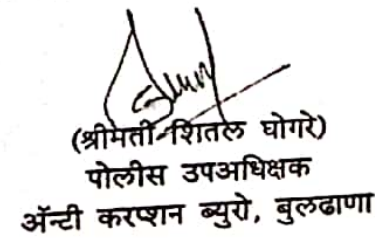 (श्रीमती शितल घोगरे)
पोलीस उपअधिक्षक
ॲन्टी करप्शन ब्युरो, बुलढाणा